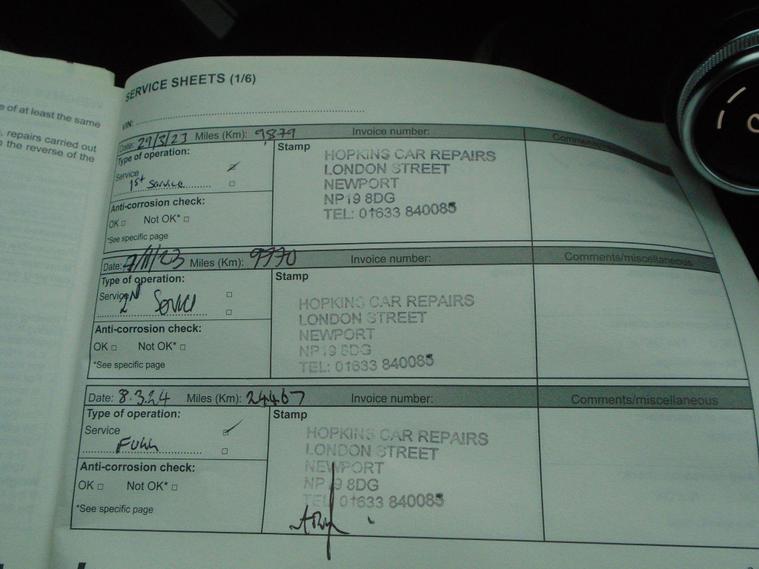 e of at least the same
, repairs carried out
n the reverse of the
SERVICE SHEETS (1/6)
VIN:
Date: 29/3/23 Miles (Km): 9879 Invoice number: Comments/miscellaneous
Type of operation:
Service
1st Service
Anti-corrosion check:
OK □ Not OK* □
*See specific page
Stamp
HOPKINS CAR REPAIRS
LONDON STREET
NEWPORT
NP19 8DG
TEL: 01633 840085
Date: 7/11/23 Miles (Km): 9770 Invoice number: Comments/miscellaneous
Type of operation:
Service □
2nd Service □
Anti-corrosion check:
OK □ Not OK* □
*See specific page
Stamp
HOPKINS CAR REPAIRS
LONDON STREET
NEWPORT
NP19 8DG
TEL: 01633 840085
Date: 8.3.24 Miles (Km): 24467 Invoice number: Comments/miscellaneous
Type of operation:
Service
Full □
Anti-corrosion check:
OK □ Not OK* □
*See specific page
Stamp
HOPKINS CAR REPAIRS
LONDON STREET
NEWPORT
NP19 8DG
TEL: 01633 840085